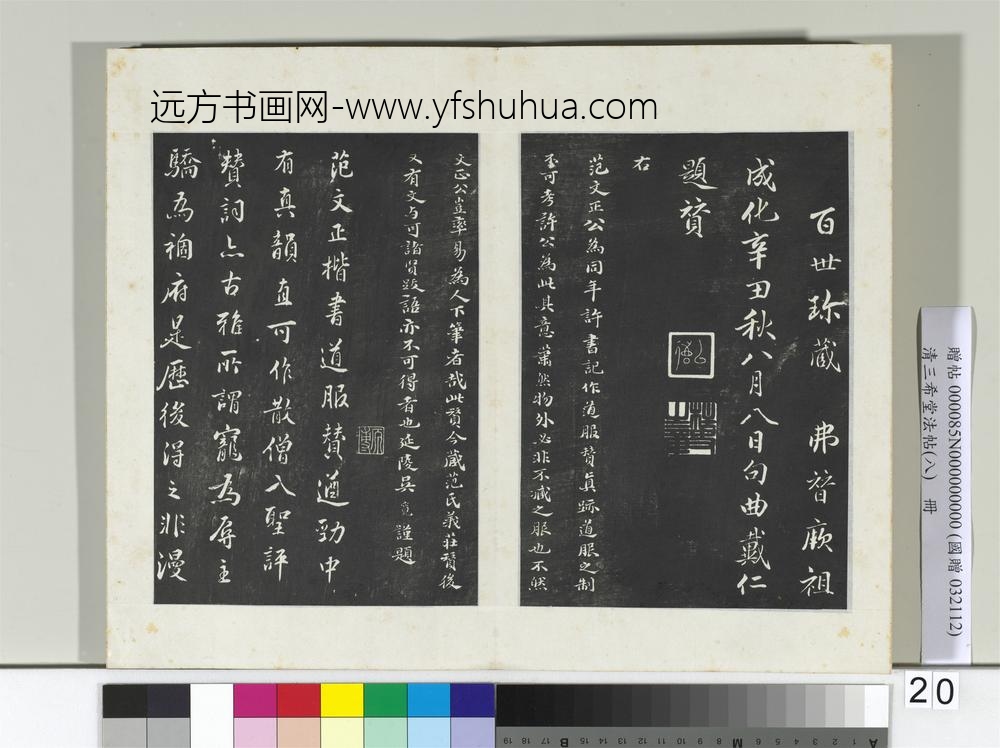 远方书画网-www.yfshuhua.com
百世珎藏 弗替厥祖
成化辛丑秋八月八日句曲戴仁
題賛
右
范文正公為同年許書記作道服贊真跡道服之制
不可考許公為此其意蕭然物外必非不臧之服也不然
文正公豈率易為人下筆者哉此贊今藏范氏義莊贊後
又有文与可諸賢跋語亦不可得者也延陵吳寬謹題
范文正楷書道服贊遒勁中
有真韻直可作散僧入聖評
贊詞亦古雅所謂寵為辱主
驕為禍府是歷後得之非漫
贈帖 000085N000000000 (國贈 032112)
清三希堂法帖(八) 冊
20